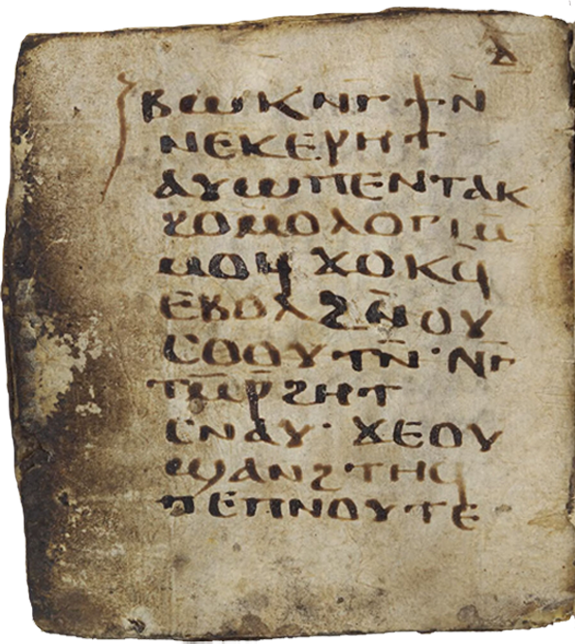 ⲇ
ⲃⲱⲕⲛⲅϯⲛ̄
ⲛⲉⲕⲉⲣⲏⲧ
ⲁⲩⲱⲡⲉⲛⲧⲁⲕ
ϩⲟⲙⲟⲗⲟⲅⲓⲙ̄
ⲙⲟϥ ϫⲟⲕϥ̄
ⲉⲃⲟⲗϩⲛ̄ⲟⲩ
ⲥⲟⲟⲩⲧⲛ̄·ⲛⲅ̄
ⲧⲙ̄ⲣ̄ϩⲏⲧ
ⲥⲛⲁⲩ· ϫⲉⲟⲩ
ϣⲁⲛϩⲧⲏϥ
ⲡⲉⲡⲛⲟⲩⲧⲉ